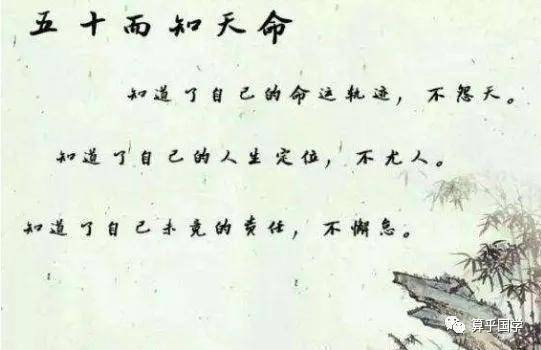 五十而知天命
知道了自己的命运轨迹，不怨天。
知道了自己的人生定位，不尤人。
知道了自己未竟的责任，不懈怠。
算乎国学